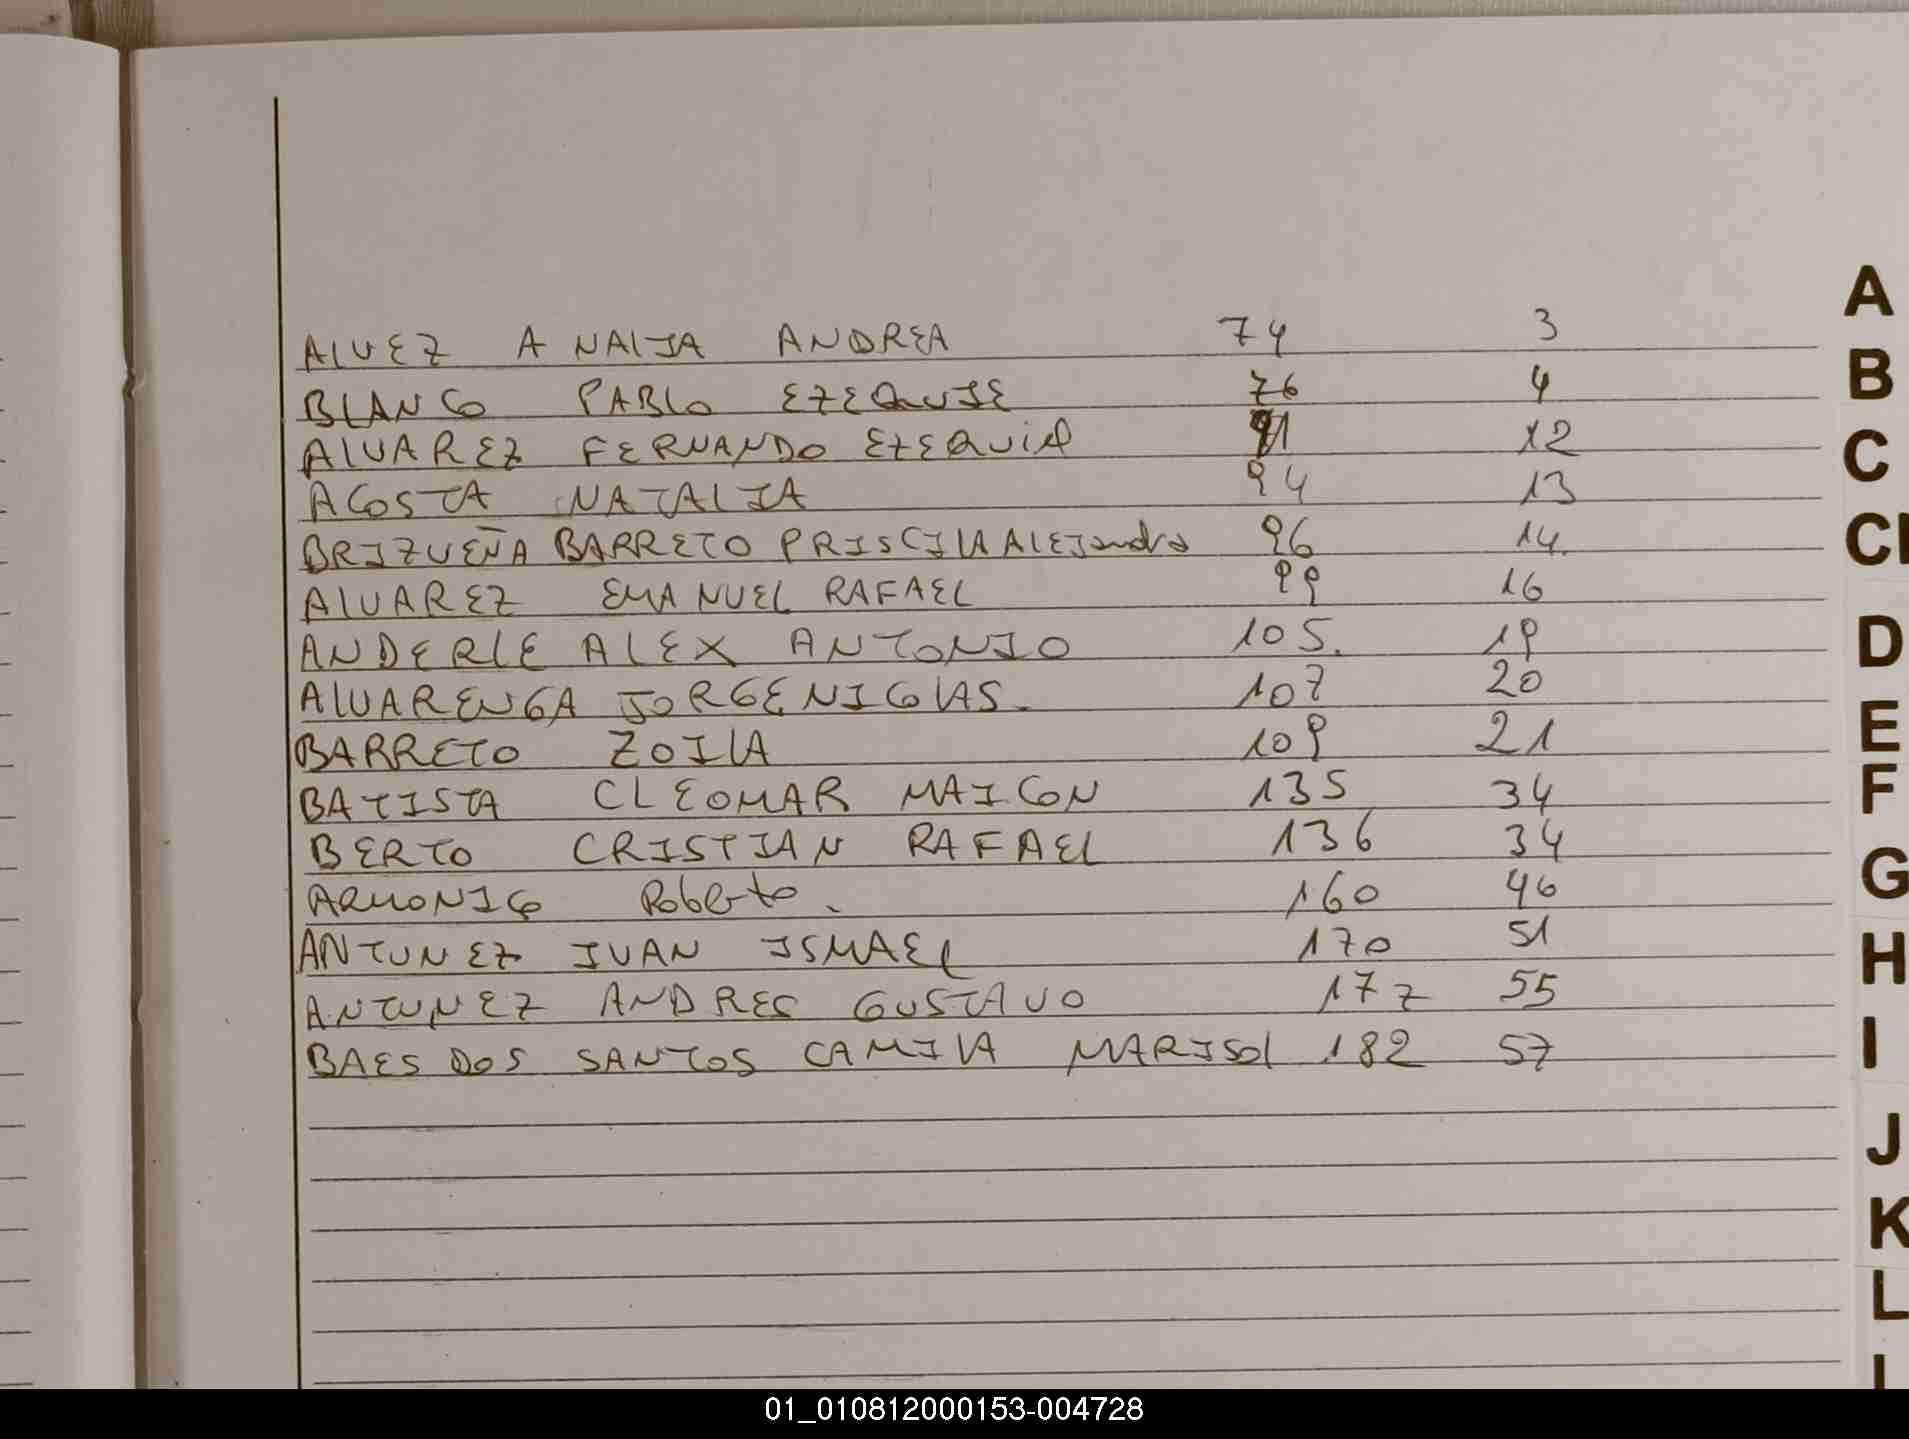 ALVEZ ANALIA ANDREA 74 3
BLANCO PABLO EZEQUIE 76 4
ALVAREZ FERNANDO EZEQUIEL 91 12
ACOSTA NATALIA 94 13
BRIZUEÑA BARRETO PRISCILA ALEJandra 96 14.
ALVAREZ EMANUEL RAFAEL 99 16
ANDERLE ALEX ANTONIO 105. 19
ALVARENGA JORGE NICOLAS. 107 20
BARRETO ZOILA 109 21
BATISTA CLEOMAR MAICON 135 34
BERTO CRISTIAN RAFAEL 136 34
ARMONICO Roberto. 160 46
ANTUNEZ IVAN ISMAEL 170 51
ANTUNEZ ANDRES GUSTAVO 177 55
BAES DOS SANTOS CAMILA MARISOL 182 57
A
B
C
D
E
F
G
H
I
J
K
L
01_010812000153-004728